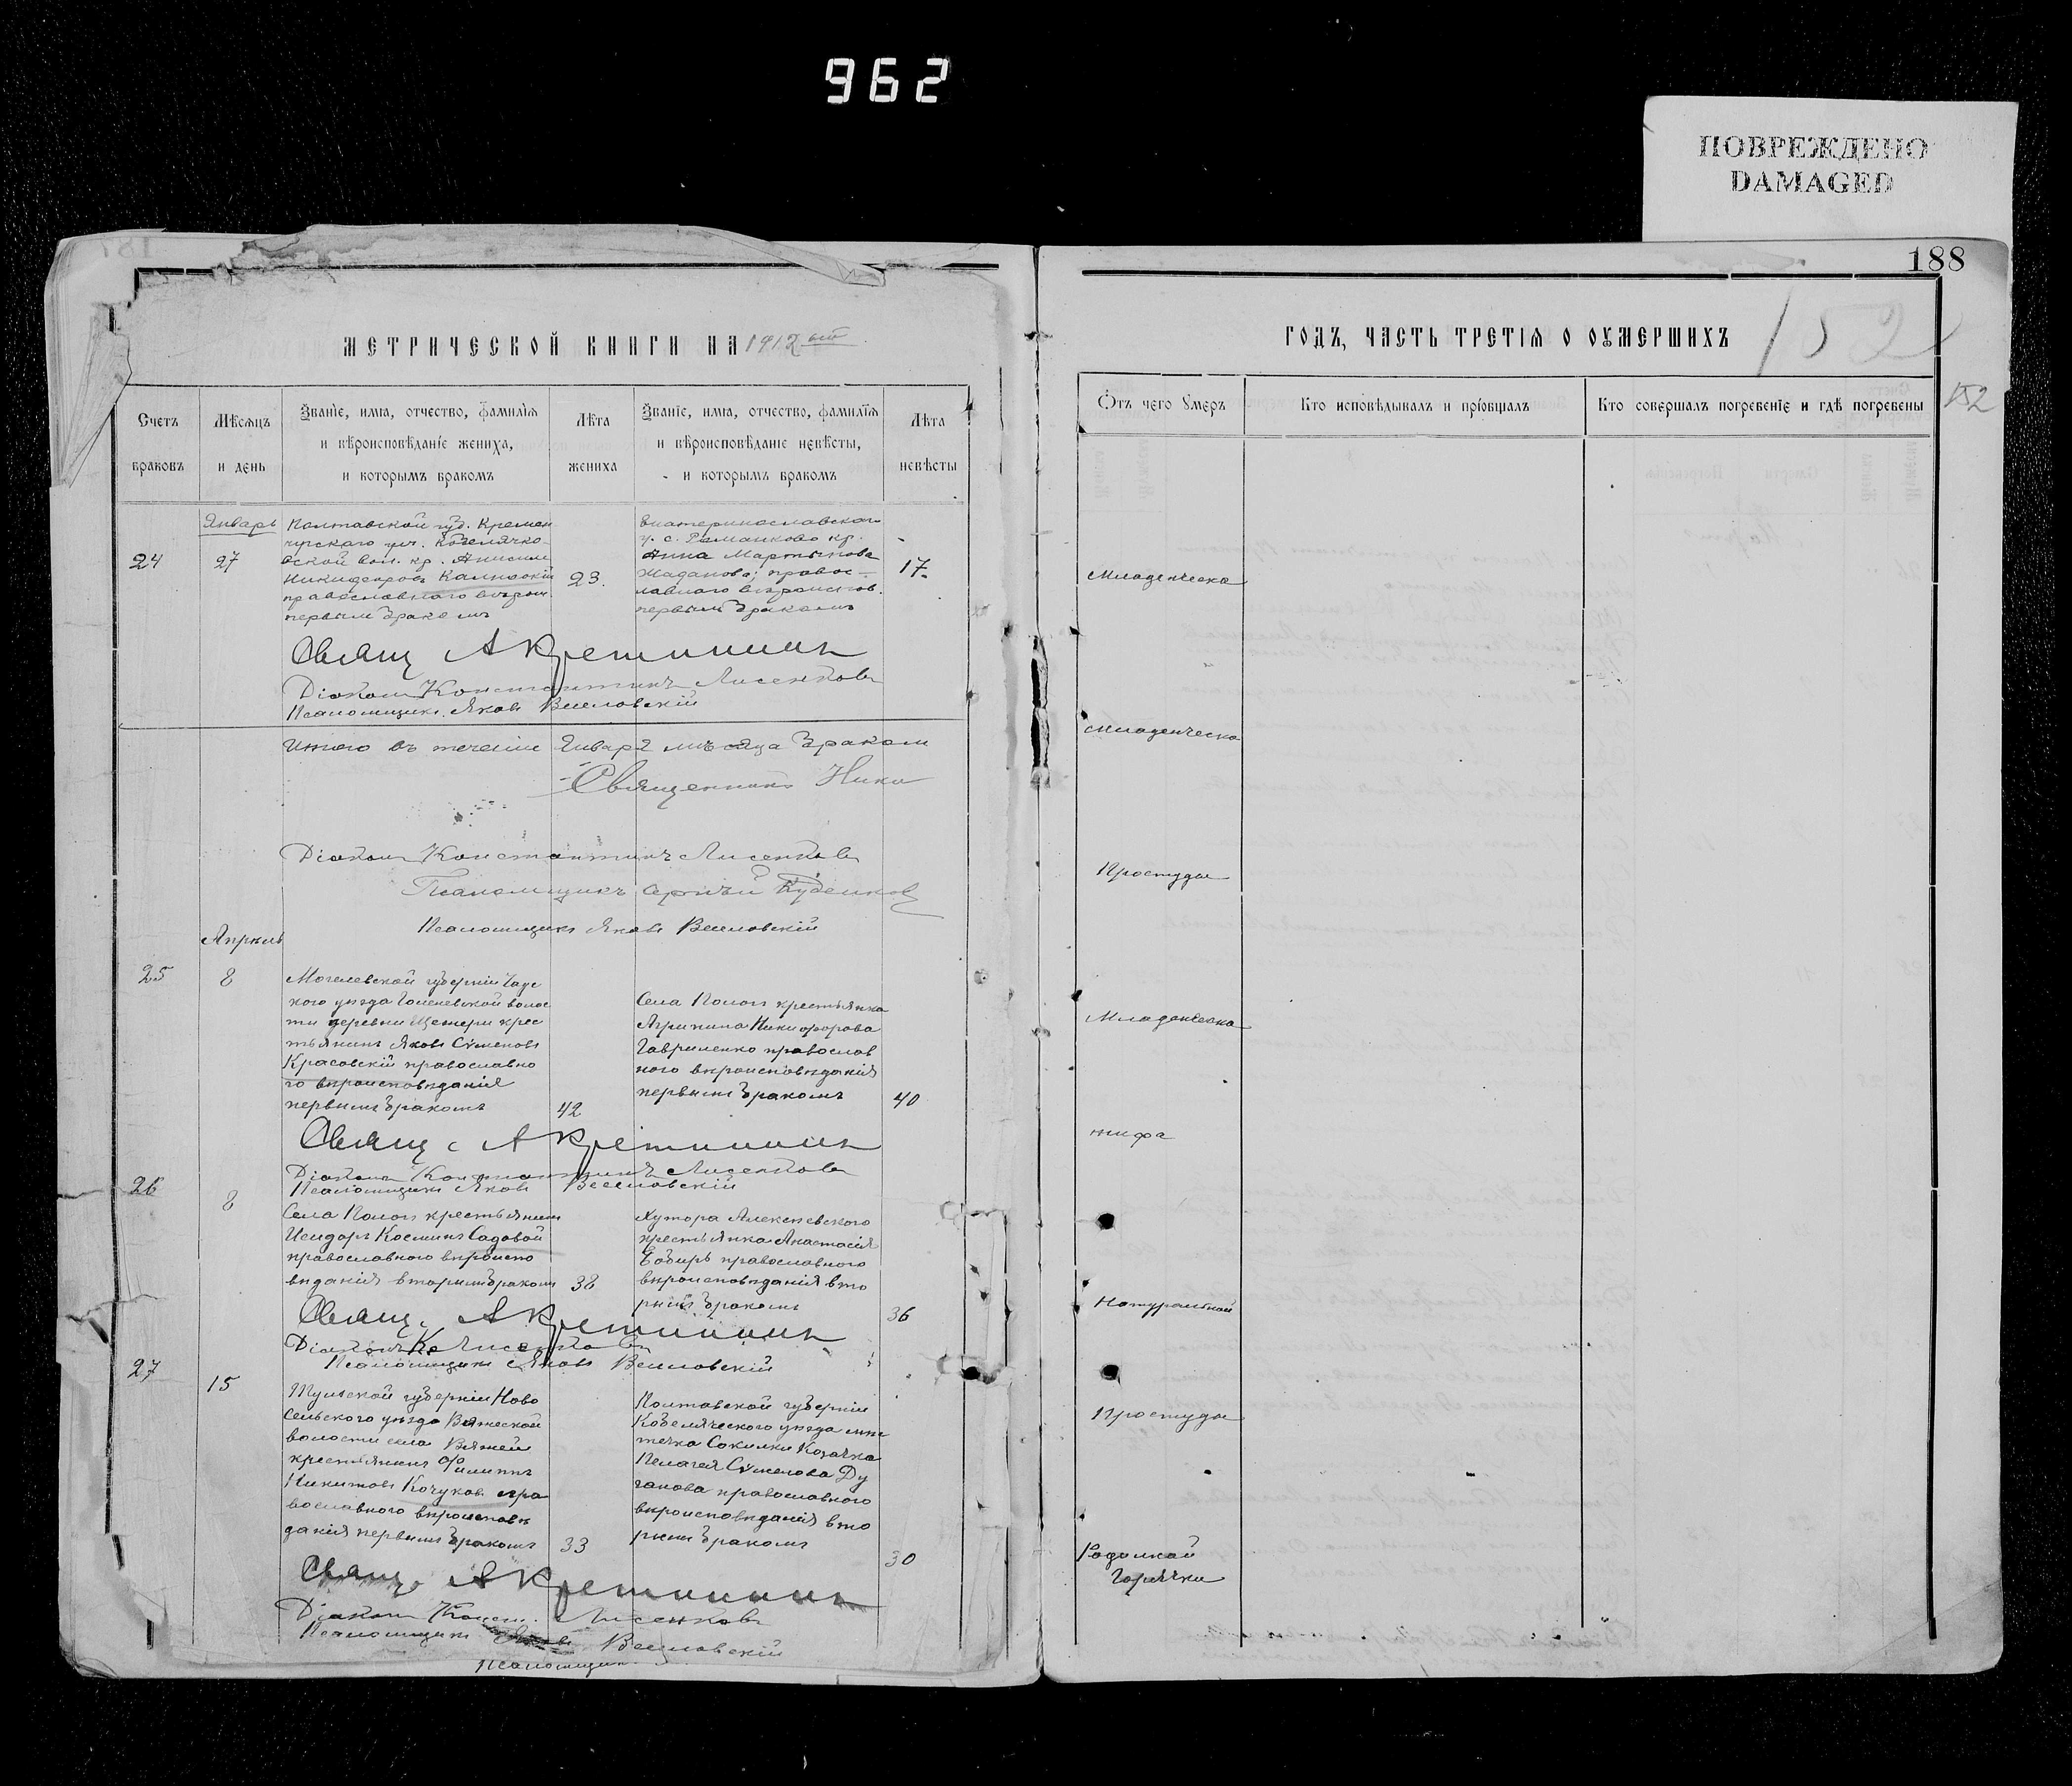 962
ПОВРЕЖДЕНО
DAMAGED
188
МЕТРИЧЕСКОЙ КНИГИ НА 1912 ый
Счетъ браковъ
Мѣсяцъ и день
Званіе, имя, отчество, фамилія
и вѣроисповѣданіе жениха,
и которымъ бракомъ
Лѣта жениха
Званіе, имя, отчество, фамилія
и вѣроисповѣданіе невѣсты,
и которымъ бракомъ
Лѣта невѣсты
Январь
24
27
Полтавской губ. Кремен
чугскаго уѣз.
вол. кр. Анисим
Никифоровъ
православнаго вѣроис
первымъ бракомъ
23.
Екатеринославскаго
у. с. Романково кр.
Анна Мартынова
Жаданова; правос-
лавнаго вѣроиспов.
первымъ бракомъ
17.
Свящ. А Кретининъ
Діаконъ Константинъ Лисенковъ
Псаломщикъ Яковъ Веселовскій
Итого въ теченіи Январѣ мѣсяца браком
Священникъ Нико
Діаконъ Константинъ Лисенковъ
Псаломщикъ Сергѣй
Псаломщикъ Яковъ Веселовскій
Апрель
25
8
Могилевской губерніи Чаус
кого уѣзда волос
ти деревни крес
тьянинъ Яковъ Сѵменовъ
Красовскій православно
го вѣроисповѣданія
первымъ бракомъ
42
Села Пологъ крестьянка
Агрипина Никифорова
Гавриленко православ
ного вѣроисповѣданія
первымъ бракомъ
40
Свящ. А Кретининъ
Діаконъ Константинъ Лисенковъ
Псаломщикъ Яковъ Веселовскій
26
8
Села Пологъ крестьянинъ
Исидоръ Косминъ Садовой
православного вѣроиспо
вѣданія вторымъ бракомъ
38
Хутора Алексѣевского
крестьянка Анастасія
православного
вѣроисповѣданія вто
рымъ бракомъ
36
Свящ. А Кретининъ
Діаконъ К. Лисенковъ
Псаломщикъ Яковъ Веселовскій
27
15
Тульской губерніи Ново
сельского уѣзда Вяжеской
волости села Вяжей
крестьянинъ Филиппъ
Никитовъ Кочуков. пра
вославного вѣроисповѣ
данія первымъ бракомъ
33
Полтавской губерніи
Кобеляческого уѣзда мѣс
течка Сокилки Козачка
Пелагея Сѵменова Ду
ганова православного
вѣроисповѣданія вто
рымъ бракомъ
30
Свящ. А Кретининъ
Діаконъ Конст. Лисенковъ
Псаломщикъ Яковъ Веселовскій
Псаломщикъ
ГОДЪ, ЧАСТЬ ТРЕТІЯ О ОУМЕРШИХЪ
152
152
Отъ чего умеръ
Кто исповѣдывалъ и пріобщалъ
Кто совершалъ погребеніе и гдѣ погребены
Младенческа
Младенческа
Простуды
Младенческа
тифа
Натуральной
Простуды
Родильной
горячки